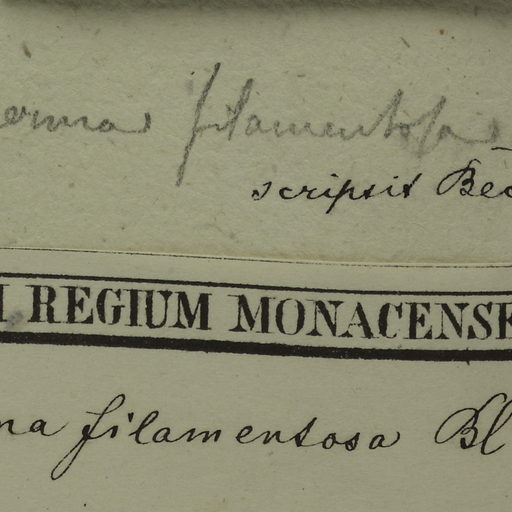 filamentosa
scripsit Bec
REGIUM MONACENSE
na filamentosa Bl